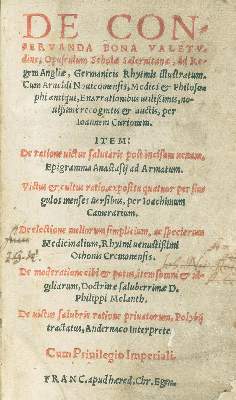 DE CON
SERVANDA BONA VALETV-
dine, Opusculum Scholæ Salernitanæ, ad Re-
gem Angliæ, Germanicis Rhymis illustratum.
Cum Arnoldi Nouicomensis, Medici & Philoso-
phi antiqui, Enarrationibus utilissimis, no-
uissime recognitis & auctis, per
Ioannem Curionem.
ITEM:
De ratione victus salutaris post incisam uenam,
Epigramma Anastasij ad Armatum.
Victus & cultus ratio, exposita quatuor per sin-
gulos menses uersibus, per Ioachimum
Camerarium.
De electione meliorum simplicium, ac specierum
Medicinalium, Rhymi uenustissimi
Othonis Cremonensis.
De moderatione cibi & potus, item somni & ui-
giliarum, Doctrinæ saluberrimæ D.
Philippi Melanth.
De uictus salubris ratione priuatorum, Polybij
tractatus, Andernaco Interprete.
Cum Priuilegio Imperiali.
FRANC. apud hæred. Chr. Egen.